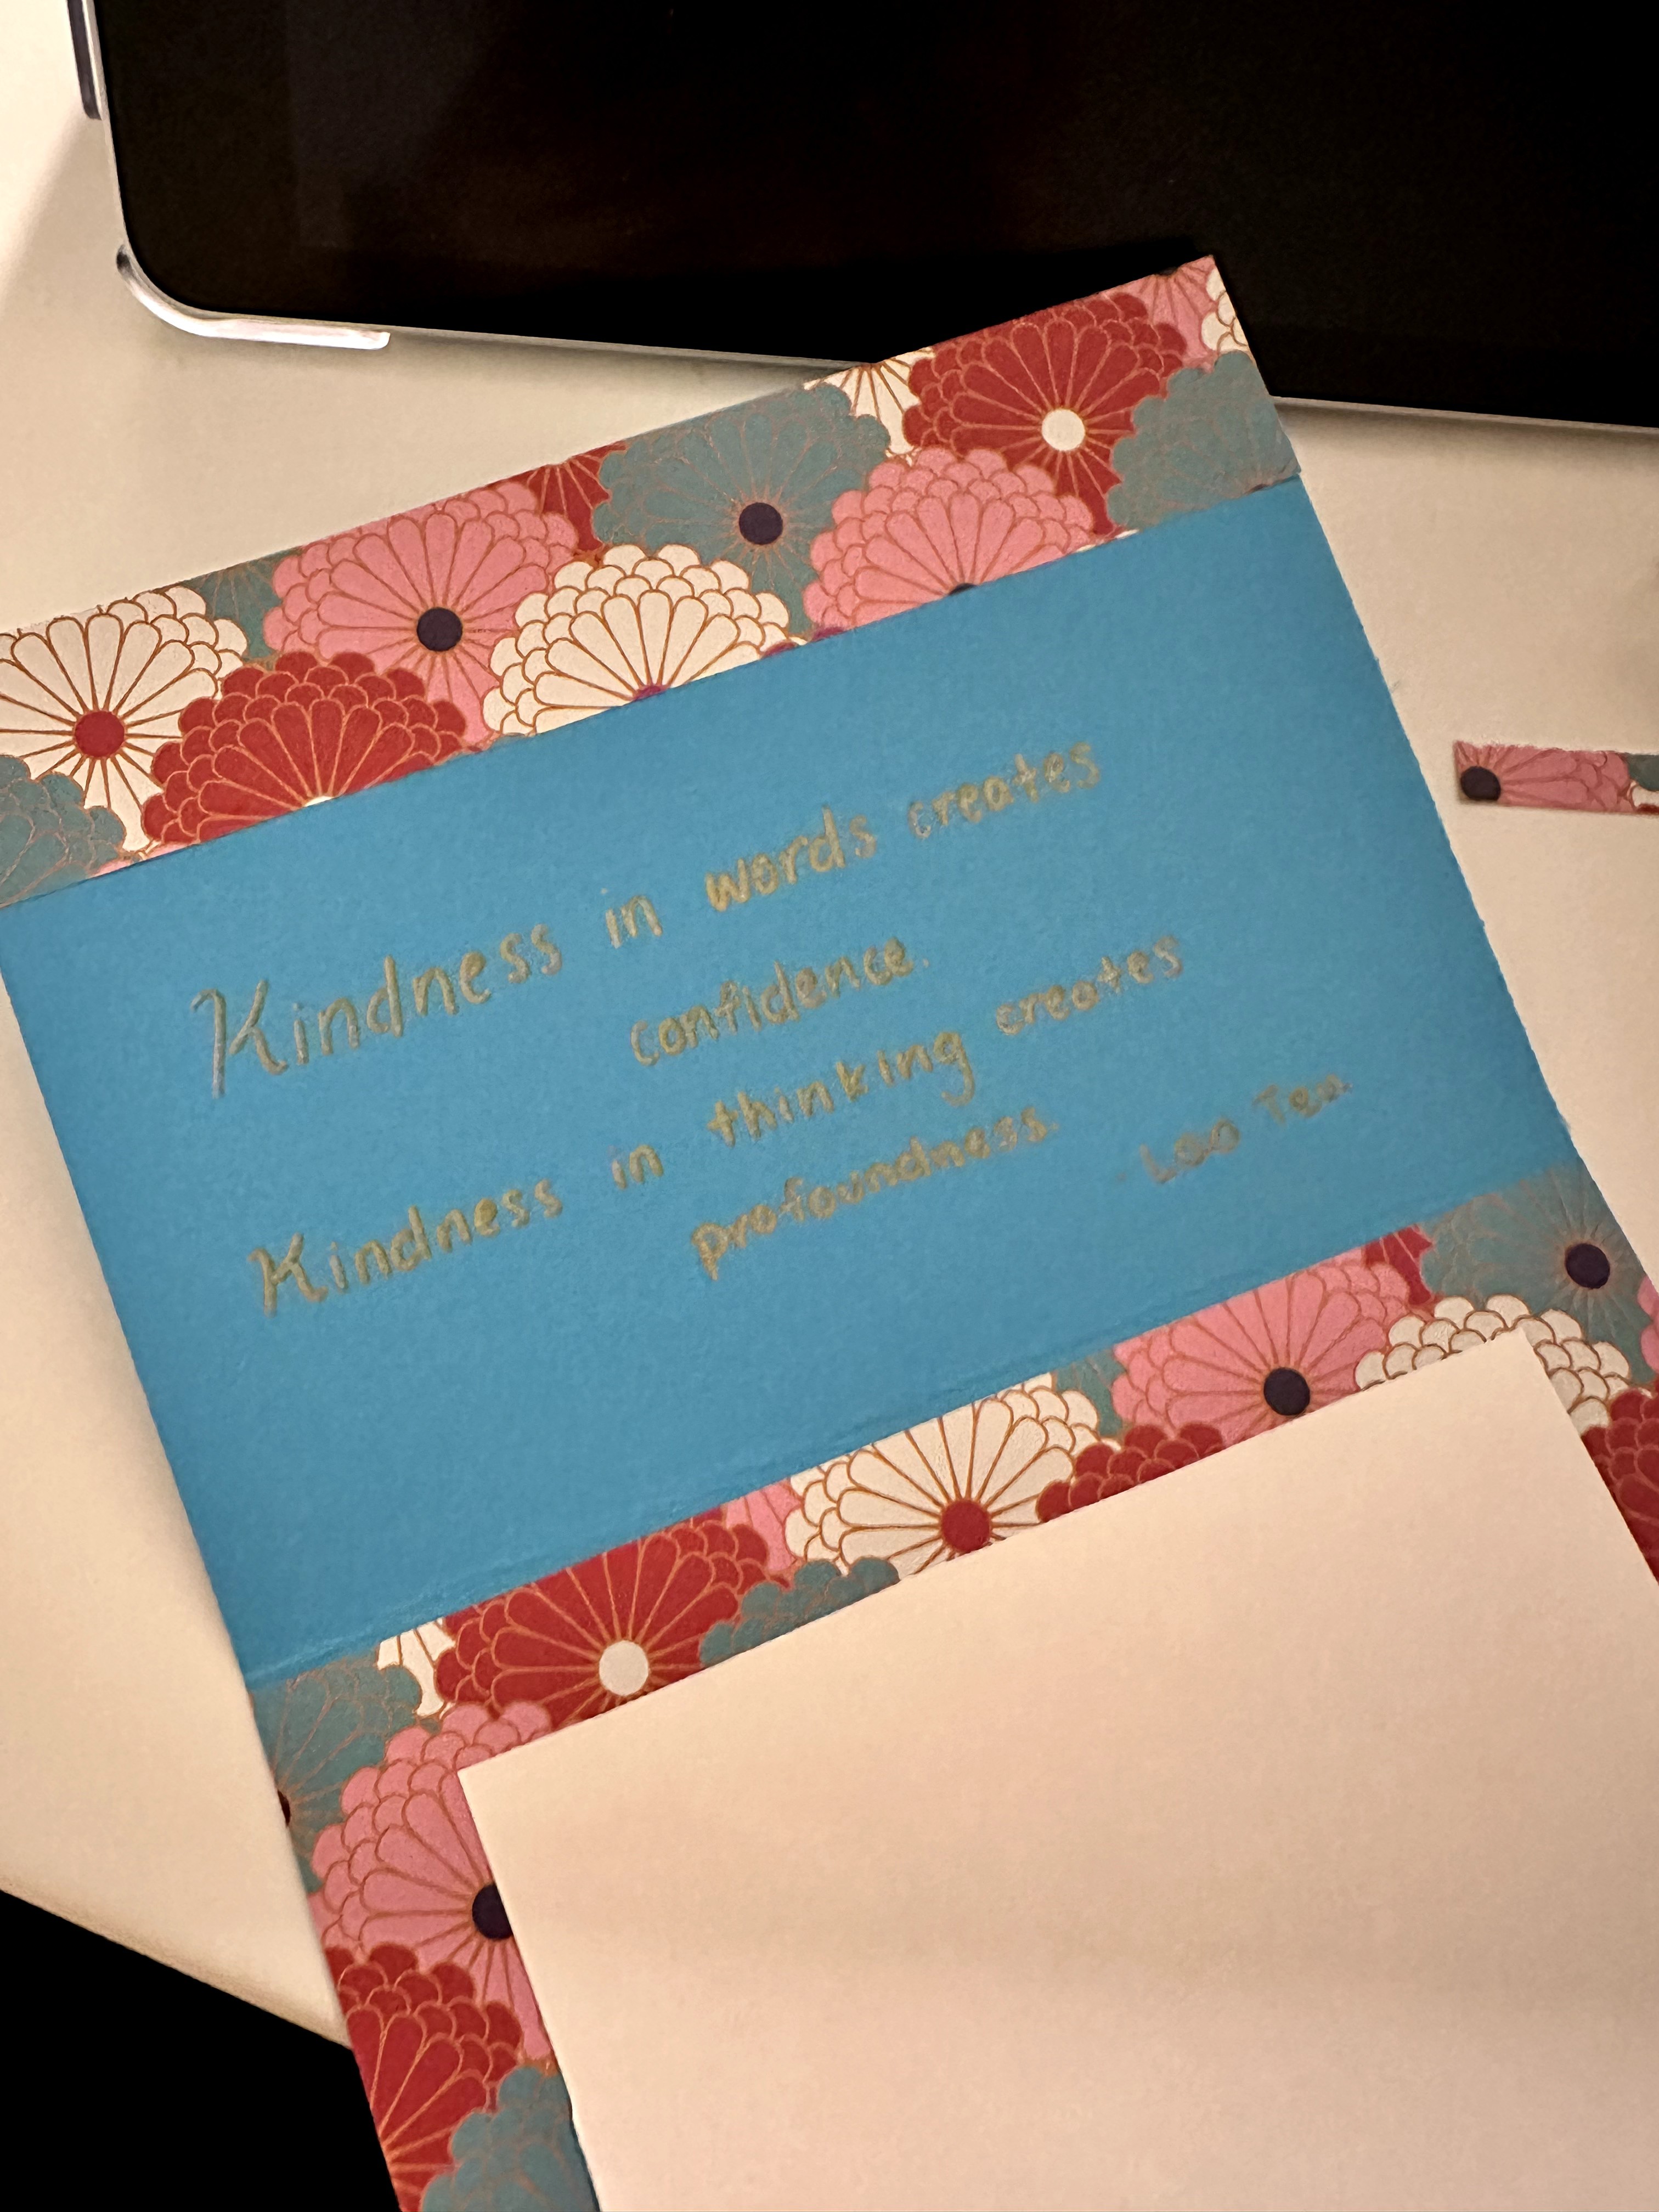 Kindness in words creates
confidence.
Kindness in thinking creates
profoundness.
- Lao